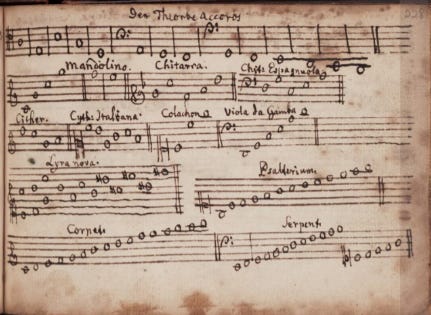 Der Theorbe Accords
Mandolino. Chitarra. Chit: Espagnuola
Cither. Cyth: Italiana. Colachon Viola da Gamba
Lyra nova. Psalterium.
Cornet. Serpent.